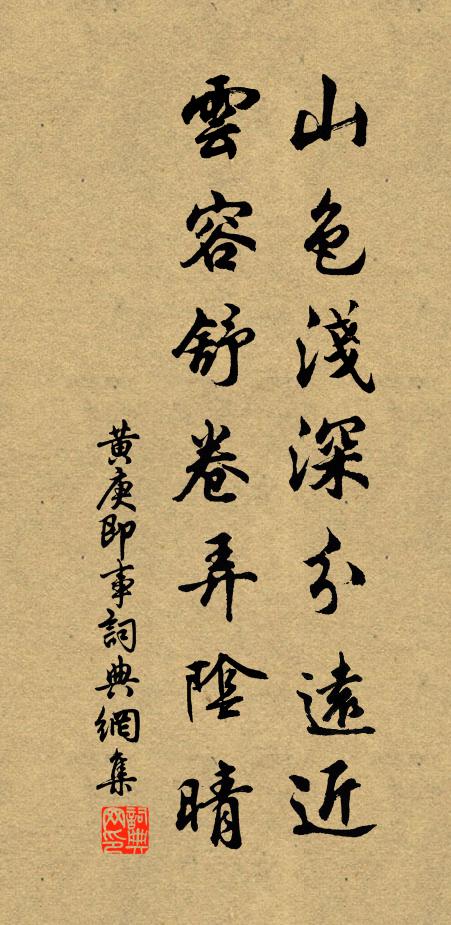 山色淺深分遠近
雲容舒卷弄陰晴
黄庚即事詞典網集
詞典網印